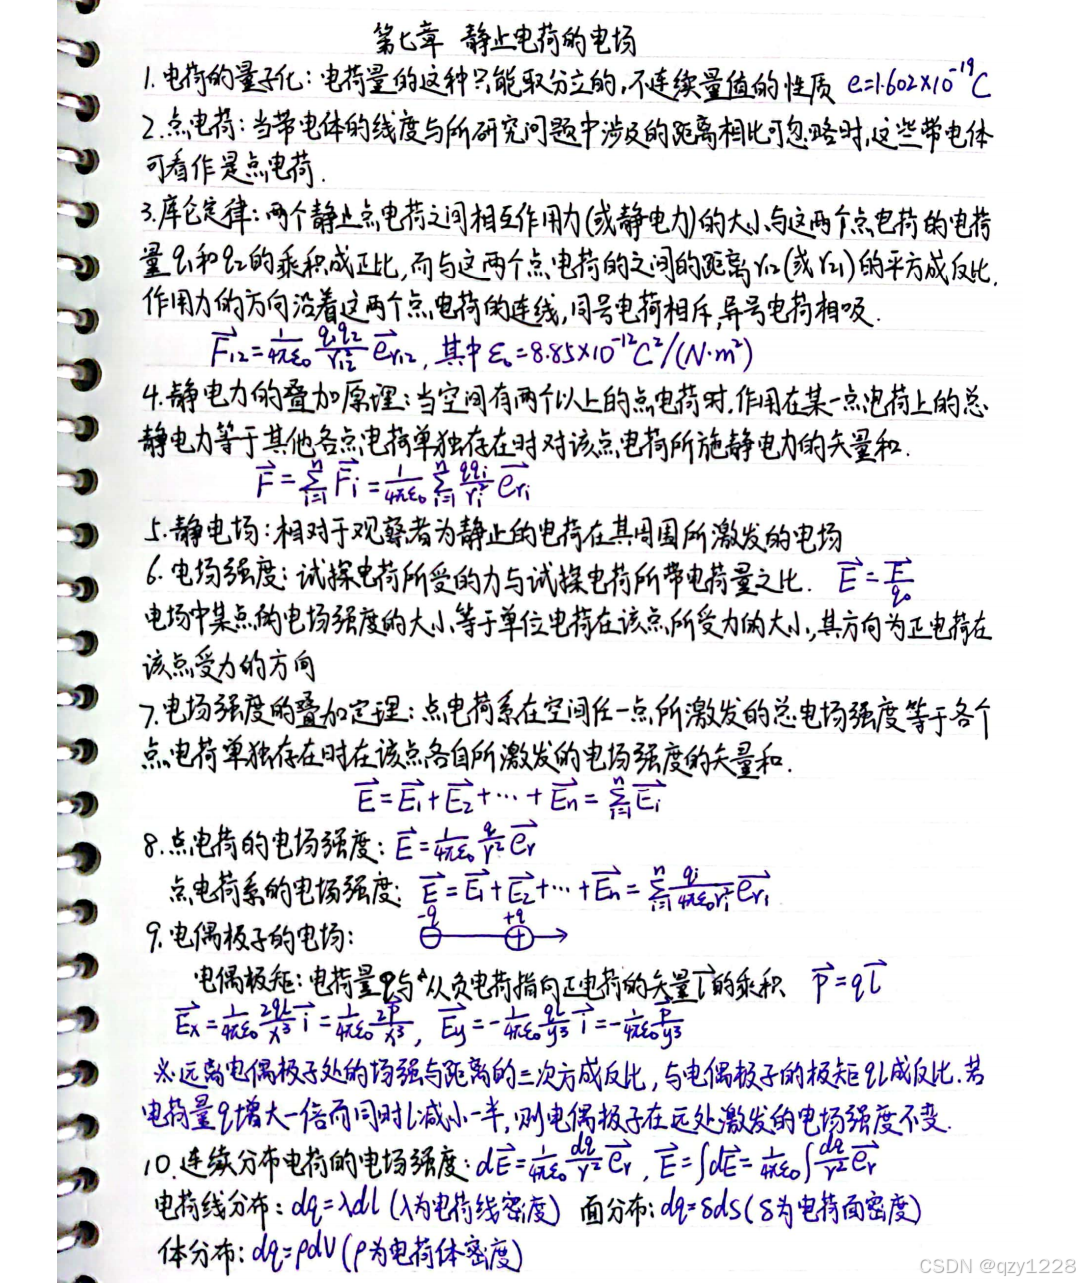 第七章 静止电荷的电场
1.电荷的量子化：电荷量的这种只能取分立的,不连续量值的性质 e=1.602×10⁻¹⁹C
2.点电荷：当带电体的线度与所研究问题中涉及的距离相比可忽略时,这些带电体
可看作是点电荷.
3.库仑定律：两个静止点电荷之间相互作用力(或静电力)的大小与这两个点电荷的电荷
量q₁和q₂的乘积成正比,而与这两个点电荷的之间的距离r₁₂(或r₂₁)的平方成反比,
作用力的方向沿着这两个点电荷的连线,同号电荷相斥,异号电荷相吸.
F⃗₁₂=1/4πε₀ q₁q₂/r₁₂² e⃗r₁₂, 其中ε₀=8.85×10⁻¹²C²/(N·m²)
4.静电力的叠加原理：当空间有两个以上的点电荷时,作用在某一点电荷上的总
静电力等于其他各点电荷单独存在时对该点电荷所施静电力的矢量和.
F⃗=∑ⁿᵢ₌₁F⃗ᵢ=1/4πε₀ ∑ⁿᵢ₌₁ qqᵢ/rᵢ² e⃗rᵢ
5.静电场：相对于观察者为静止的电荷在其周围所激发的电场
6.电场强度：试探电荷所受的力与试探电荷所带电荷量之比. E⃗=F⃗/q₀
电场中某点的电场强度的大小等于单位电荷在该点所受力的大小,其方向为正电荷在
该点受力的方向
7.电场强度的叠加定理：点电荷系在空间任一点所激发的总电场强度等于各个
点电荷单独存在时在该点各自所激发的电场强度的矢量和.
E⃗=E⃗₁+E⃗₂+···+E⃗n=∑ⁿᵢ₌₁E⃗ᵢ
8.点电荷的电场强度：E⃗=1/4πε₀ q/r² e⃗r
点电荷系的电场强度：E⃗=E⃗₁+E⃗₂+···+E⃗n=∑ⁿᵢ₌₁ qᵢ/4πε₀rᵢ² e⃗rᵢ
-q +q
9.电偶极子的电场：
电偶极矩：电荷量q与从负电荷指向正电荷的矢量l⃗的乘积 p⃗=ql⃗
E⃗x=1/4πε₀ 2ql/x³ i⃗=1/4πε₀ 2p⃗/x³, E⃗y=-1/4πε₀ ql/y³ i⃗=-1/4πε₀ p⃗/y³
※远离电偶极子处的场强与距离的三次方成反比,与电偶极子的极矩ql成反比.若
电荷量q增大一倍而同时l减小一半,则电偶极子在远处激发的电场强度不变.
10.连续分布电荷的电场强度：dE⃗=1/4πε₀ dq/r² e⃗r, E⃗=∫dE⃗=1/4πε₀ ∫dq/r² e⃗r
电荷线分布：dq=λdl (λ为电荷线密度) 面分布：dq=δds(δ为电荷面密度)
体分布：dq=ρdV(ρ为电荷体密度)
CSDN @qzy1228